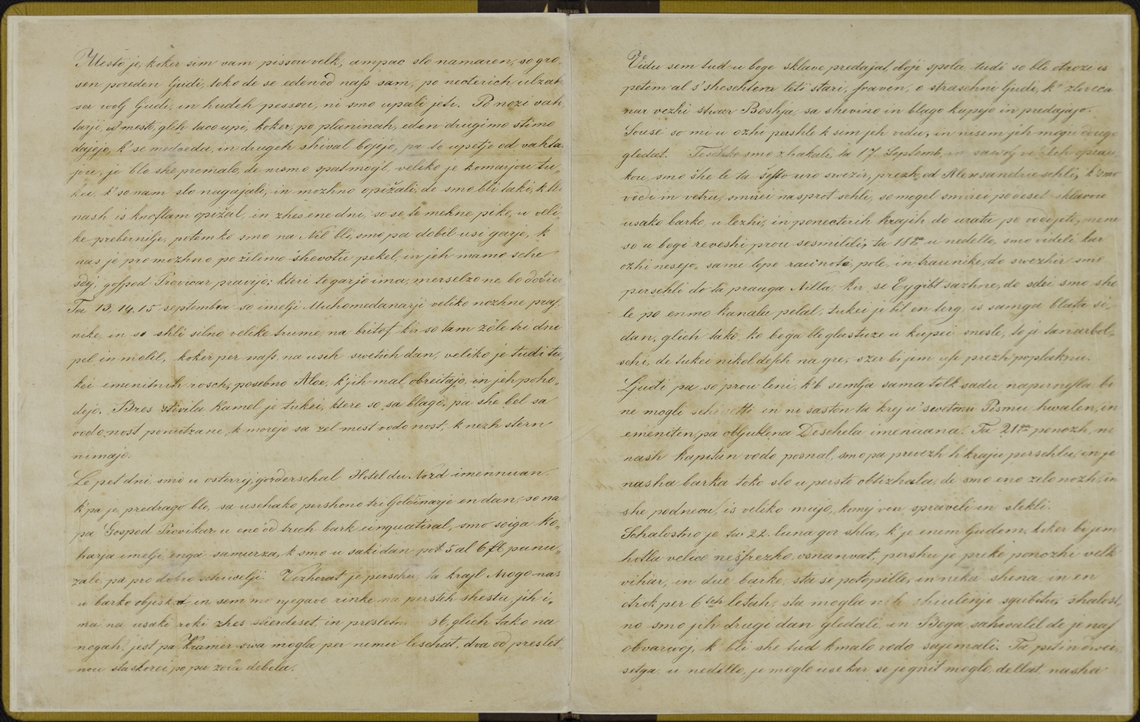 Mesto je, koker sim vam pissou velk, ampac slo namaren, so gro,
sen poreden Ludi, toko de so eden od naß sam, po nectirich ulzah
sa volj Ludi, in hudeh pessou, ni smo upali jeti. Po nozi vah
tarji, u mesto, glih taco upi, koker, po planinah, eden drugimo
dajejo, k' se medveda, in drugeh shival bojijo, pa to upetje od vahta
jou, je blo she premalo, de nismo spat mogli, veliko je komarjou tu
kei k' so nam slo nagajali, in mozhno opizhali, de smo bli taki, k' te
nash is knoftam opizhal, in zhes ene dni so se te mehne pike, u veli
ke prebernile, potem ko smo na Nil bli, smo pa dobil usi garje, k
nas je pro mozhno po zelimo shevotu pekel in jeh mamo sche
sdej, gospod Provicar pravijo; kteri te garje ima, merselze ne bo dobiu
Ta 13, 14, 15 septembra so imeli Muhomedanarji veliko nozhne praz
nike, in so shli silno veleke trume, na britof kir so tam zele tri dni
pel in molil, koker per naß, na useh svetih dan, veliko je tudi tu
kei imenitnih rosch, posebno Aloe, k' jih mal obreitajo, in jih poho
dijo. Bres stivila Kamel je tukei, ktere so, sa blago, pa she bol sa
vodo nost ponutzane, k morejo sa zel mest vodo nost, k nezh stern
nimajo.
Le pet dni smo u ostirij, gorderschal Hotel du Nord imennuvan
k' pa je, predrago blo, sa uschako pershono tri Goldinarje en dan, so na
pa Gospod Provikar u eno od treh bark unguatiral, smo soiga Ko,
harja imeli, enga samurza, k smo u saki dan pet 5 al 6 fl punu,
zale, pa pro dobro schiveli. Vezherat je pershu, ta krajl Mogo na
u barko objiskat in sem mo njegove rinke na persteh shestu, jih i,
ma na usaki roki zhes siirdeset in preslisn 36 glich tako na
nogah, jest pa Kramer swa mogla per nemu leschat, dva od presles
mu sta skorei po pa zole debela.
Vidu sem tud u boge sklave predajat doji spola tudi so bli otrozi is
petim al s' sheshtem leti stari, fraven, o straschni Ludi, k' zhveca
nar vezhi stvar Boshja, sa shivino in blago kupijo in predajajo.
Sousi so mi u ozhi pershle k sim jeh vidu, in nisem jih mogu dougo
gledat. Teshko smo zhakali, ta 17 Septemb, in savolj vezheh oprau
kou, smo she le ta sesto uro svezir, prezh od Alexsandrie schli, k' smo
vodi in vetru, smirei nasprot schli, so mogel smireo po deset sklavou
usako barko, u lezhi, in ponectirih krajih do uratu po vodi jet, mene
so u bogi reveshi prou sesmilili; ta 18ten u nedello, smo videli kar
ozhi nesejo, same lepe raunote, pole, in traunike, do swezhir smo
pershli do ta prauga Nilla, kir se Eygibt sazhne, do sdei smo she
le po enmo kanalu pelal, tukei je bil en terg is samga blata si,
dan, glich tako ko kega blaglastuze u kupei nesle, to je ta narbol,
schi, de tukei nikol desh na gre, szer bi jem use prezh poplaknu.
Ludi pa so prou leni, k' b semlja sama tolk sadu naperneßla bi
ne mogli schivetti in ne saston ta krej u' swetemu Pismu hwalen, in
emeniten, pa obljublena Dischela imenuana. Ta 21ten ponozh, ni
nash kapitan vodo posnal, smo pa prevezh h kraju pershli, in je
nasha barka teko slo u peisk obtizhala, de smo eno zelo nozh, in
she podnevu, is veliko mujo, kumej ven spraveli in slekli.
Schalostno je ta 22. luna gor shla, k' je enem Ludem, koker bi jem
hotla velko nesrezko osnanvat, pershu je preke ponozhi velk
vihar, in dve barke sta se potopille, in neka shena, in en
otrok per 6 tih letah, sta mogla u h shiulenje sgubiti, shalost,
no smo jih drugi dan gledali, in Boga sahvalil de je naß
obvarvoj, k bli she tud kmalo vodo sajemali. Ta petindvei
setga u nedello, je moglo use kar se je gnit moglo, dellat nasha